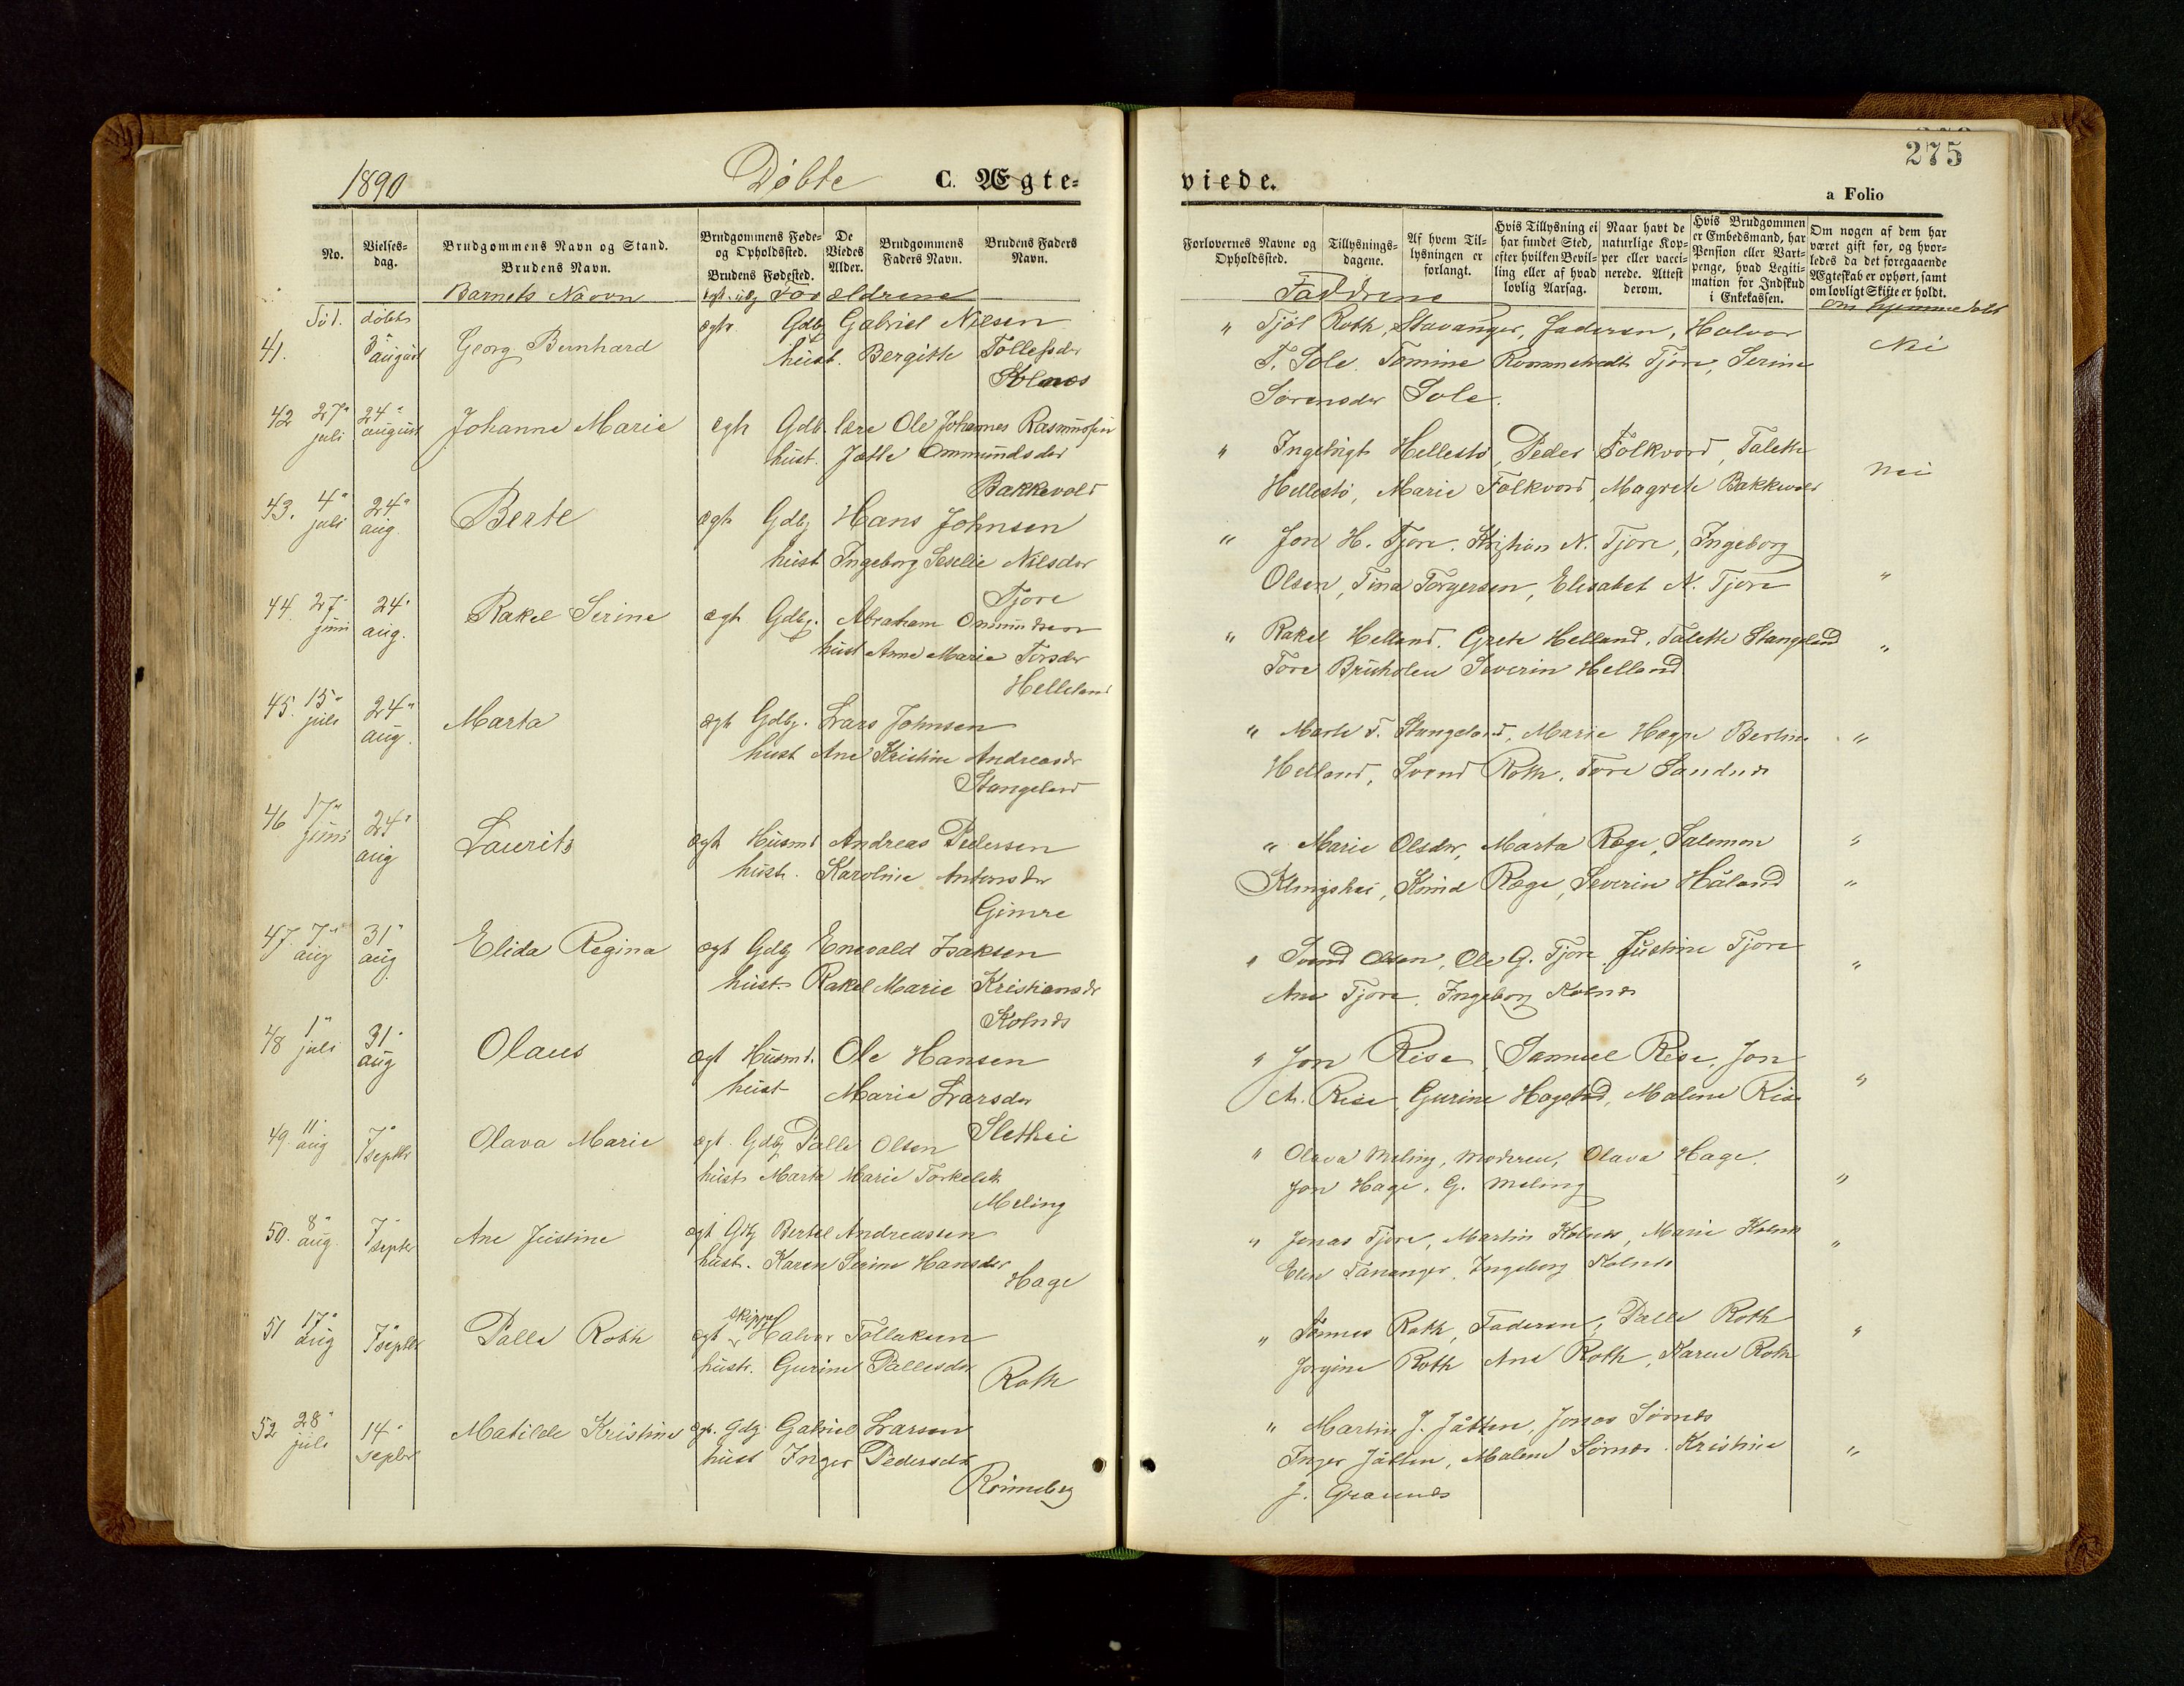 1890
Døbte
C. Ægte-
No.
Vielses-
dag.
Brudgommens Navn og Stand.
Brudens Navn.
Brudgommens Føde-
og Opholdssted.
Brudens Fødested.
De
Viedes
Alder.
Brudgommens
Faders Navn.
Brudens Faders
Navn.
Barnets Navn
Forældrene
Fød. døbts
41. 3" august Georg Bernhard ægte Gdb Gabriel Nilsen
hust. Bergitte Tollefsdr
Kolnes
42 27" juli 24" august Johanne Marie ægte Gdb. Ole Johannes Rasmussen
hust. Ommundsdr
Bakkevold
43. 4" juli 24" aug. Berte ægte Gdbg Hans Johnsen
hust Ingeborg Seselie Nilsdr
Tjore
44. 27" juni 24" aug. Rakel Serine ægte Gdbg. Abraham Ommundsen
hust Anne Marie Torsdr
Helleland
45. 15" juli 24" aug. Marta ægt Gdbg. Lars Johnsen
hust Ane Kristine Andreasdr
Stangeland
46 17" juni 24" aug Laurits ægt Husmd Andreas Pedersen
hust. Karoline Antonsdr
Gimre
47. 7" aug 31" aug Elida Regina ægt Gdbg Enevald Isaksen
hust. Rakel Marie Kristiansdr
Kolnes
48 1" juli 31" aug Olaus ægt Husmd. Ole Hansen
hust Marie Larsdr
Slethei
49. 11" aug 7" septbr Olava Marie ægt. Gdbg Palle Olsen
hust Marta Marie Torkelsdr
Meling
50. 8" aug. 7" septbr Ane Justine ægt Gdbg Bertel Andreassen
hust. Karen Serine Hansdr
Hage
51 17" aug 7" septbr Palle Roth ægt skipper Halvor Tollaksen
hustr. Gurine Pallesdr
Roth
52 28" juli 14" septbr Matilde Kristine ægt. Gdbg. Gabriel Larsen
hust Inger Pedersdr
Rønneberg
viede.
275
a Folio
Forlovernes Navne og
Opholdssted.
Tillysnings-
dagene.
Af hvem Til-
lysningen er
forlangt.
Hvis Tillysning ei
har fundet Sted,
efter hvilken Bevil-
ling eller af hvad
lovlig Aarsag.
Naar havt de
naturlige Kop-
per eller vacci-
nerede. Attest
derom.
Hvis Brudgommen
er Embedsmand, har
Pension eller Vart-
penge, hvad Legiti-
mation for Indskud
i Enkekassen.
Om nogen af dem har
været gift før, og hvor-
ledes da det foregaaende
Ægteskab er ophørt, samt
om lovligt Skifte er holdt.
Faddrene
om hjemmedøbt
" Roth, Stavanger, Faderen, Halvor Nei
T. Sole. Tomine Tjore, Serine
Sørensdr Sole.
" Ingebrigt Hellestø, Peder Folkvord, Talette nei
Hellestø, Marie Folkvord, Magrete Bakkevold
" Jon H. Tjore. Kristian N. Tjore, Ingeborg
Olsen, Tina Torgersen, Elisabet N. Tjore "
" Rakel Helland, Grete Helland, Talette Stangeland "
Tore Severin Helland
" Marte T. Stangeland, Marie Hogre Bertine "
Helland, Svend Roth, Tore Sandnes
" Marie Olsdr, Marta Røge, Salomon "
Klingshei, Knud Røge, Severin Håland "
" Svend Olsen, Ole G. Tjore Justine Tjore "
Ane Tjore, Ingeborg Kolnes
" Jon Risa, Samuel Risa, Jon
A. Risa, Gurine Hogstad, Malene Risa "
" Olava Meling, Moderen, Olava Hage,
Jon Hage, G. Meling "
" Jonas Tjore, Martin Kolnes, Marie Kolnes "
Elen Tananger, Ingeborg Kolnes
" Tønnes Roth, Faderen, Palle Roth "
Jorgine Roth Ane Roth, Karen Roth
" Martin J. Jåtten, Jonas Sørnes
Inger Jåtten, Malene Sørnes. Kristine "
J. Grannes